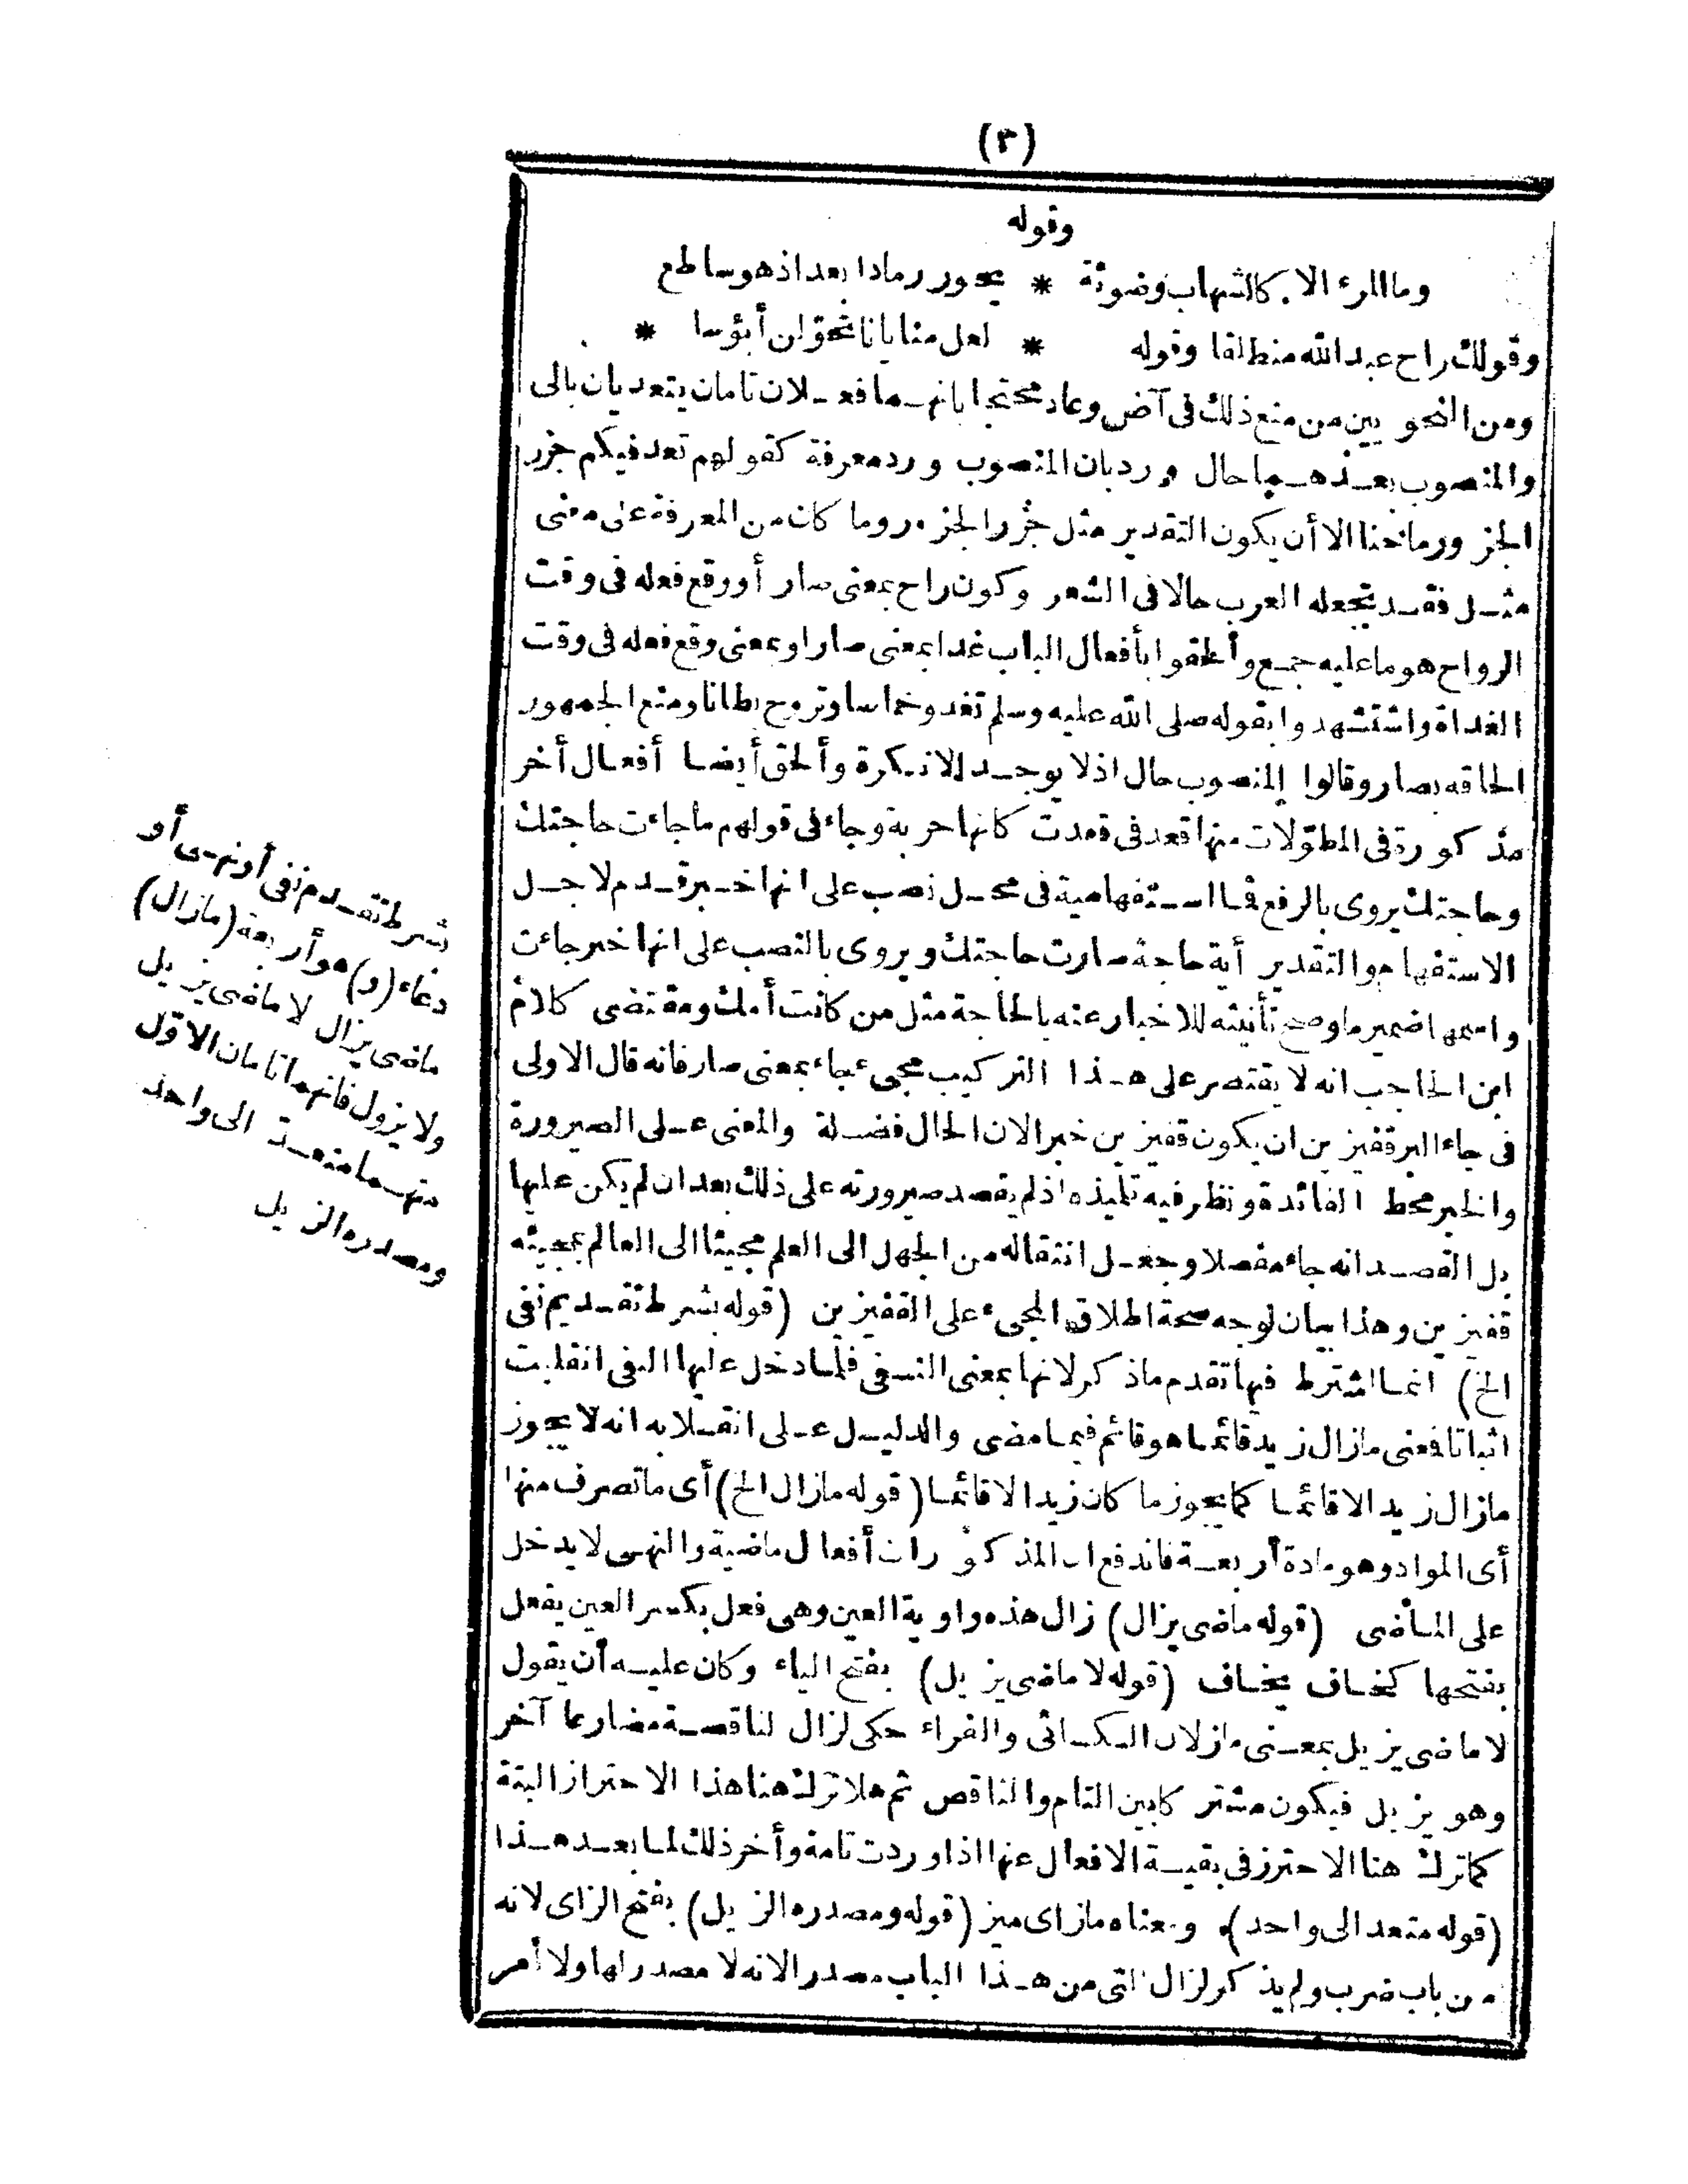 (٣)
وقوله
وما المرء الا كالشهاب وضوئه * يحور رمادا بعد اذ هو ساطع
وقولك راح عبد الله منطلقا وقوله * لعل منايانا تحوّلن أبؤسا *
ومن النحويين من منع ذلك فى آض وعاد محتجا بانهما فعلان تامان يتعديان بالى
والمنصوب بعدهما حال ورد بان المنصوب ورد معرفة كقولهم تعد فيكم جزر
الجزور رماحنا الا أن يكون التقدير مثل جزر الجزور وما كان من المعرفة على معنى
مثل فقد تجعله العرب حالا فى الشعر وكون راح بمعنى صار أو وقع فعله فى وقت
الرواح هو ما عليه جمع وألحقوا بأفعال الباب غدا بمعنى صار او بمعنى وقع فعله فى وقت
الغداة واستشهدوا بقوله صلى الله عليه وسلم تغدو خماصا وتروح بطانا ومنع الجمهور
الحاقه بصار وقالوا المنصوب حال اذ لا يوجد الا نكرة وألحق أيضا أفعال أخر
مذكورة فى المطوّلات منها قعد فى قعدت كانها حربة وجاء فى قولهم ما جاءت حاجتك
وحاجتك يروى بالرفع فما استفهامية فى محل نصب على انها خبر قدم لاجل
الاستفهام والتقدير أية حاجة صارت حاجتك ويروى بالنصب على انها خبر جاءت
واسمها ضمير ما وصح تأنيثه للاخبار عنه بالحاجة مثل من كانت أمك ومقتضى كلام
ابن الحاجب انه لا يقتصر على هذا التركيب مجىء جاء بمعنى صار فانه قال الاولى
فى جاء البر قفيزين ان يكون قفيزين خبر الان الحال فضلة والمعنى على الصيرورة
والخبر محط الفائدة ونظر فيه تلميذه اذ لم يقصد صيرورته على ذلك بعد ان لم يكن عليها
بل القصد انه جاء مفصلا وجعل انتقاله من الجهل الى العلم مجيئا الى العالم بمجيئه
قفيزين وهذا بيان لوجه صحة اطلاق المجىء على القفيزين (قوله بشرط تقديم نفى
الخ) انما اشترط فيها تقدم ما ذكر لانها بمعنى النفى فلما دخل عليها النفى انقلبت
اثباتا فمعنى ما زال زيد قائما هو قائم فيما مضى والدليل على انقلابه انه لا يجوز
ما زال زيد الا قائما كما يجوز ما كان زيد الا قائما (قوله ما زال الخ) أى ما تصرف منها
أى المواد وهو مادة أربعة فاندفع ان المذكورات أفعال ماضية والنهى لا يدخل
على الماضى (قوله ماضى يزال) زال هذه واوية العين وهى فعل بكسر العين يفعل
بفتحها كخاف يخاف (قوله لا ماضى يزيل) بفتح الياء وكان عليه أن يقول
لا ماضى يزيل بمعنى ماز لان الكسائى والفراء حكى لزال الناقصة مضارعا آخر
وهو يزيل فيكون مشتركا بين التام والناقص ثم هلا ترك هنا هذا الاحتراز البتة
كما ترك هنا الاحترز فى بقية الافعال عنها اذا وردت تامة وأخر ذلك لما بعد هذا
(قوله متعد الى واحد) ومعناه ماز اى ميز (قوله ومصدره الزيل) بفتح الزاى لانه
من باب ضرب ولم يذكر لزال التى من هذا الباب مصدر الانه لا مصدر لها ولا أمر
بشرط تقدم نفى أو نهى أو
دعاء (و) هو أربعة (ما زال)
ماضى يزال لا ماضى يزيل
ولا يزول فانهما تامان الاوّل
منهما متعد الى واحد
ومصدره الزيل